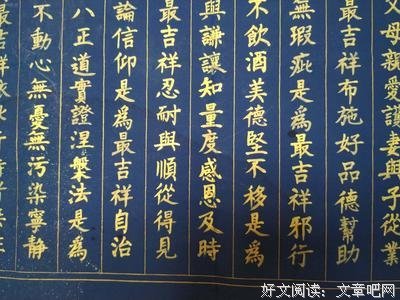 父母親愛護妻與子從業
最吉祥布施好品德幫助
無瑕疵是為最吉祥邪行
不飲酒美德堅不移是為
與謙讓知量度感恩及時
最吉祥忍耐與順從得見
論信仰是為最吉祥自治
八正道實證涅槃法是為
不動心無憂無污染寧靜
最吉祥
好文阅读：文章吧网